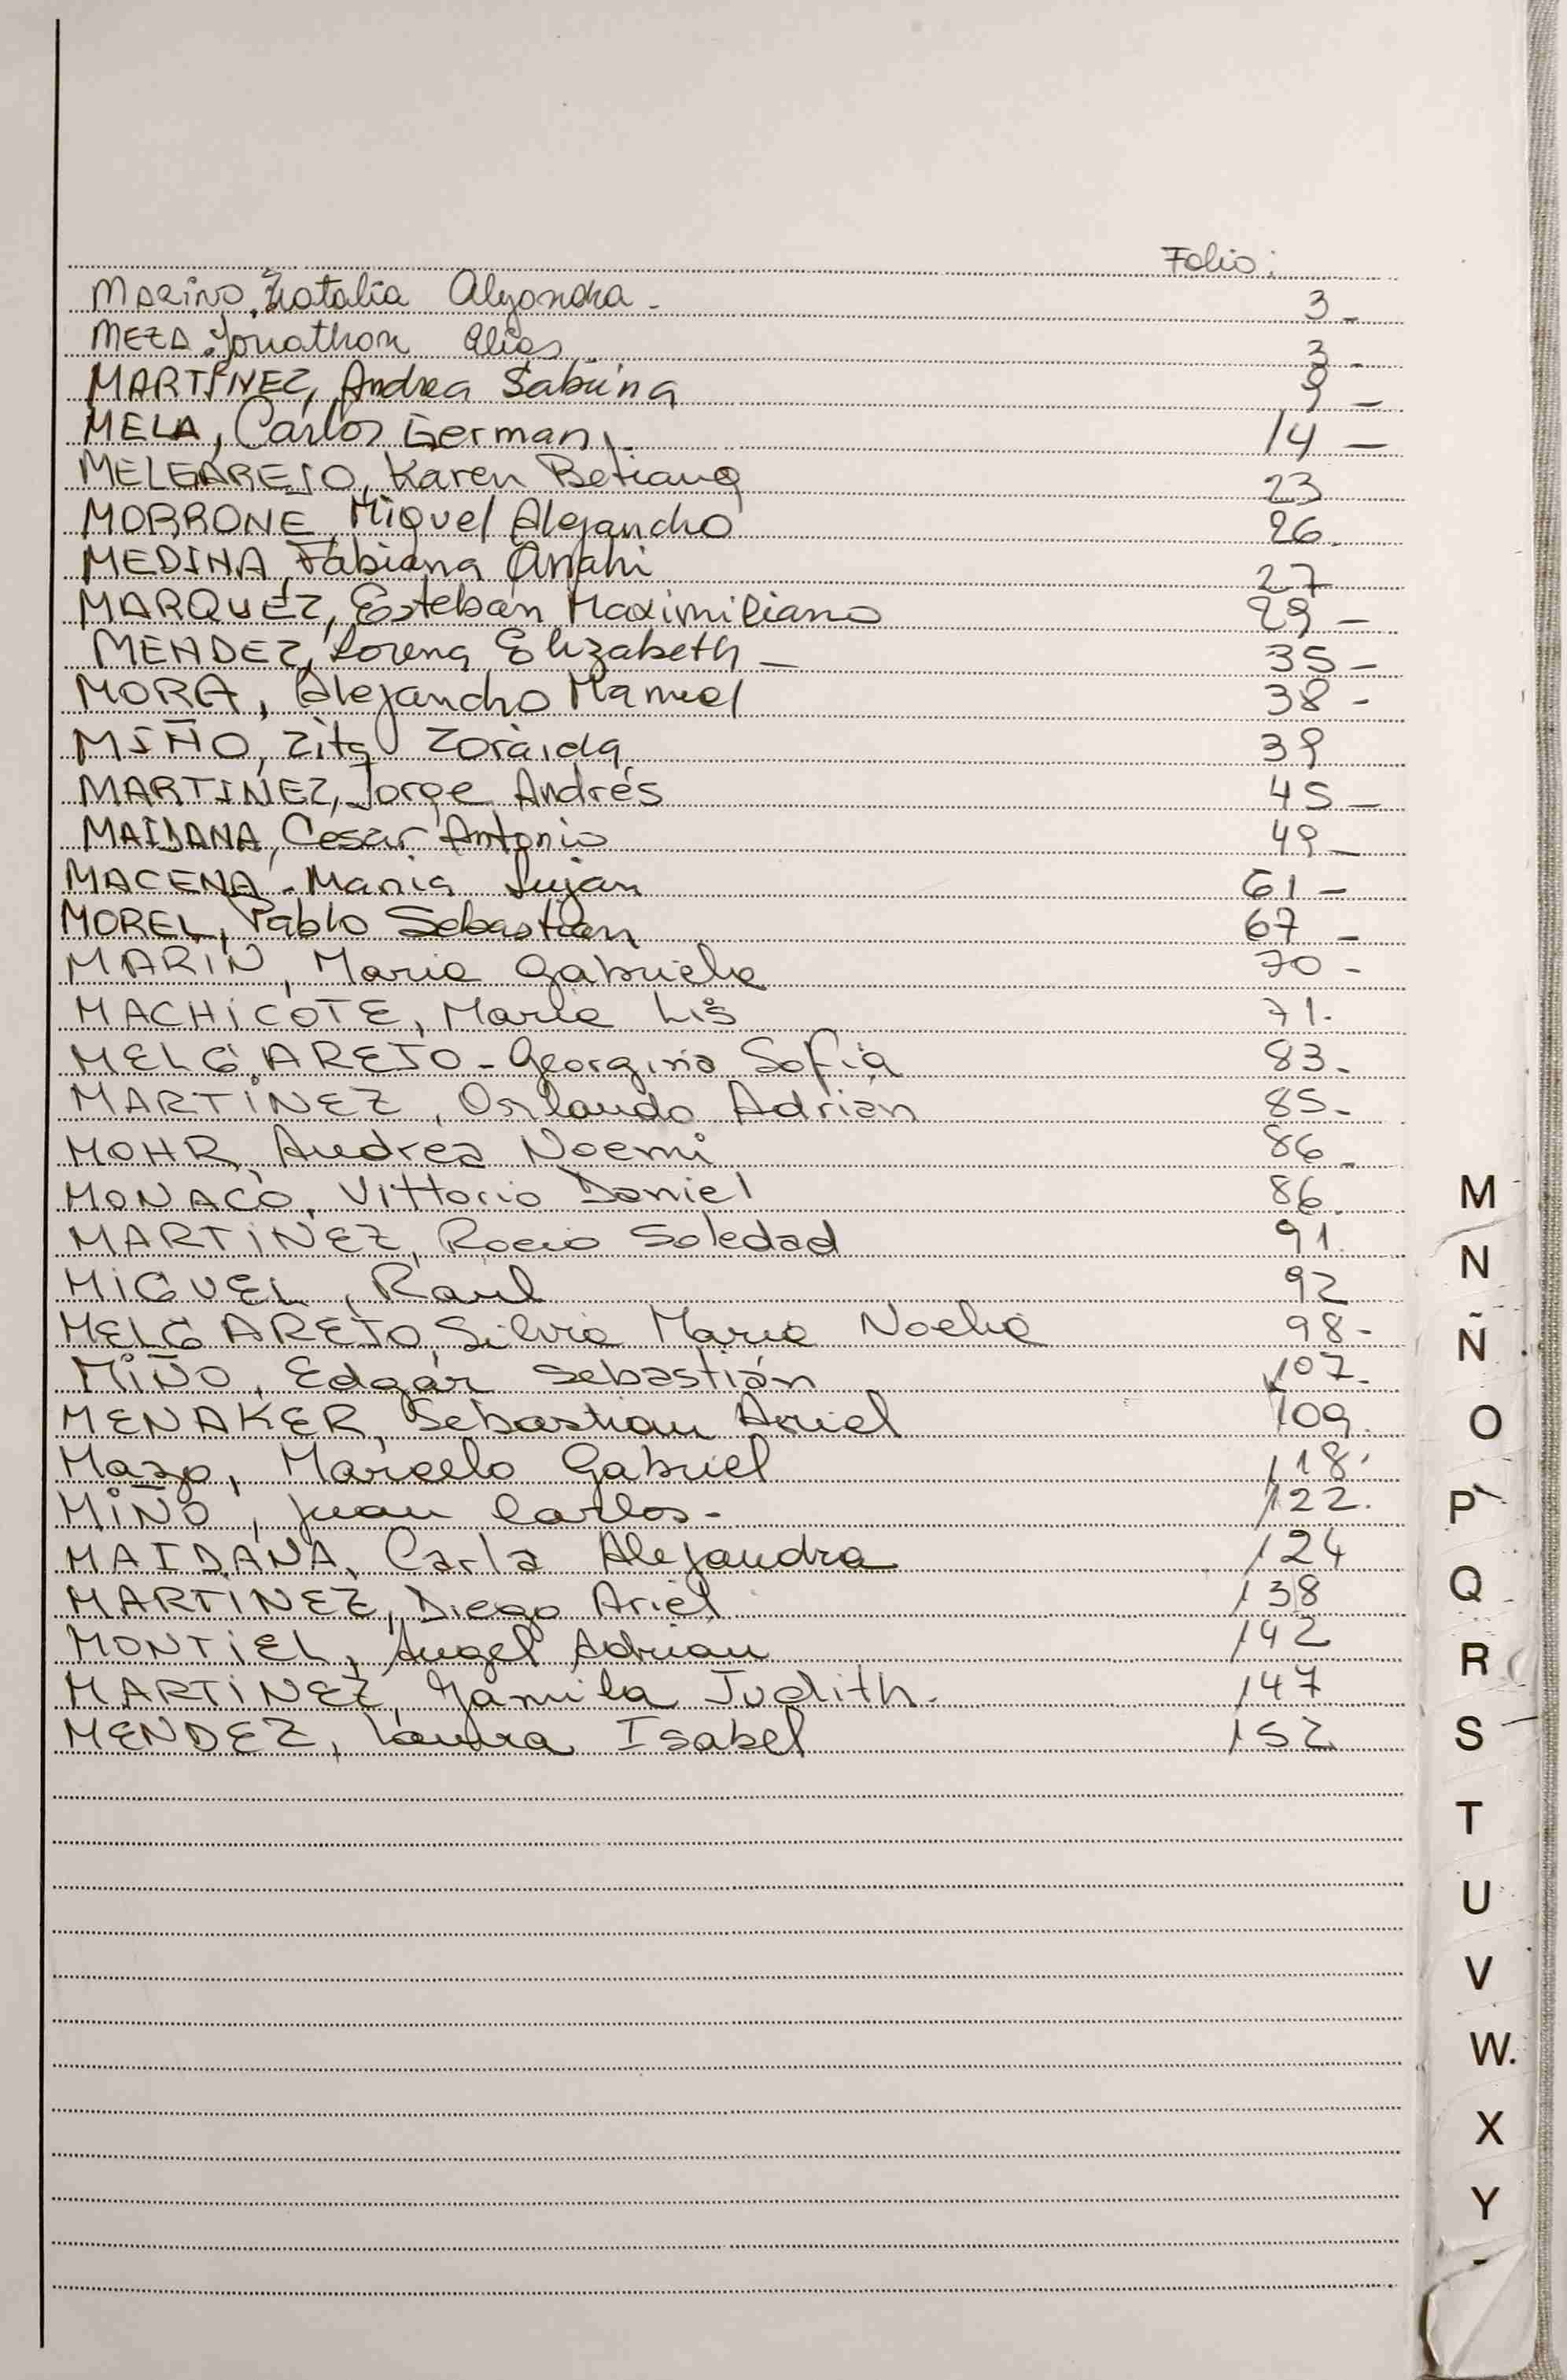 Folio:
MARINO, Natalia Alejandra - 3 -
MEZA Jonathan Elias 3 -
MARTINEZ, Andrea Sabrina 9 -
MELA, Carlos German 14 -
MELGAREJO, Karen Betiana 23
MORRONE, Miguel Alejandro 26.
MEDINA, Fabiana Anahi 27
MARQUEZ, Esteban Maximiliano 29 -
MENDEZ, Lorena Elizabeth - 35 -
MORA, Alejandro Manuel 38 -
MIÑO, Zita Zoraida 39
MARTINEZ, Jorge Andrés 45 -
MAIDANA, Cesar Antonio 49 -
MACENA - Maria Lujan 61 -
MOREL, Pablo Sebastian 67 -
MARIN, Maria Gabriela 70 -
MACHICOTE, Maria Lis 71.
MELGAREJO - Georgina Sofia 83 -
MARTINEZ, Orlando Adrian 85 -
MOHR, Andrea Noemi 86 -
MONACO, Vittorio Daniel 86.
MARTINEZ, Rocio Soledad 91.
MIGUEL, Raul 92
MELGAREJO, Silvia Maria Noelia 98 -
MIÑO, Edgar Sebastián 107.
MENAKER, Sebastian Ariel 109.
Mazo, Marcelo Gabriel 118.
MIÑO, Juan Carlos - 122.
MAIDANA, Carla Alejandra 124
MARTINEZ, Diego Ariel 138
MONTIEL, Angel Adrian 142
MARTINEZ, Yamila Judith. 147
MENDEZ, Laura Isabel 152
M
N
Ñ
O
P
Q
R
S
T
U
V
W.
X
Y